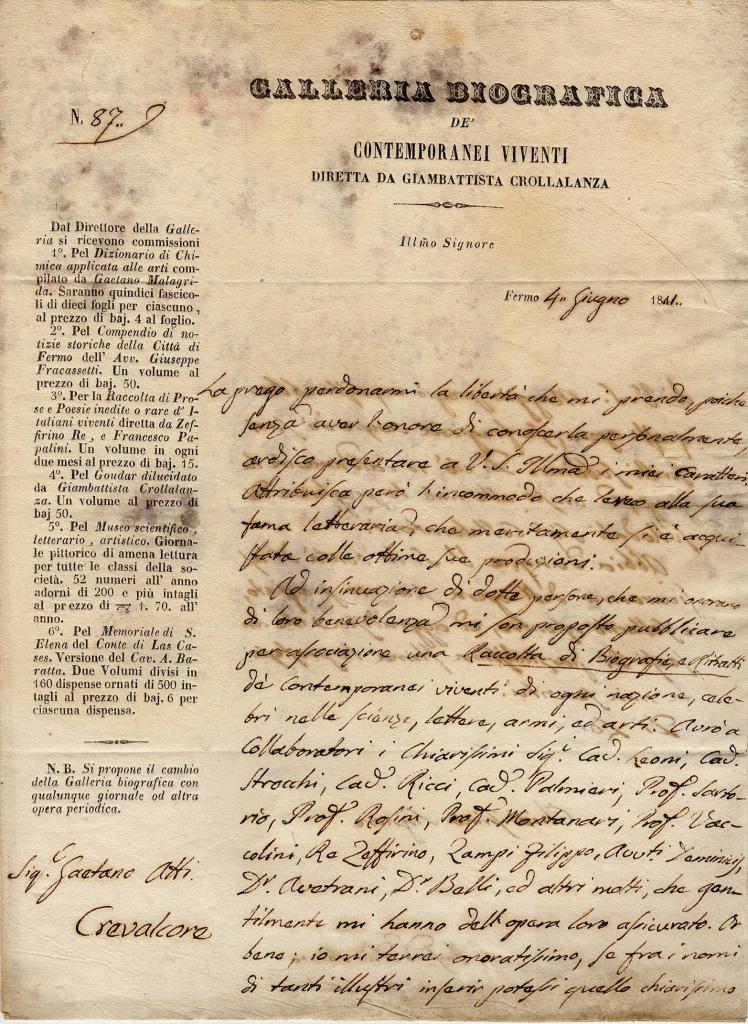 GALLERIA BIOGRAFICA
DE'
CONTEMPORANEI VIVENTI
DIRETTA DA GIAMBATTISTA CROLLALANZA
N. 87..
Illmo Signore
Fermo 4.. Giugno 1841..
Dal Direttore della Galle-
ria si ricevono commissioni
1°. Pel Dizionario di Chi-
mica applicata alle arti com-
pilato da Gaetano Malagri-
da. Saranno quindici fascico-
li di dieci fogli per ciascuno,
al prezzo di baj. 4 al foglio.
2°. Pel Compendio di no-
tizie storiche della Città di
Fermo dell' Avv. Giuseppe
Fracassetti. Un volume al
prezzo di baj. 50.
3°. Per la Raccolta di Pro-
se e Poesie inedite o rare d' I-
taliani viventi diretta da Zef-
firino Re, e Francesco Pa-
palini. Un volume in ogni
due mesi al prezzo di baj. 15.
4°. Pel Goudar dilucidato
da Giambattista Crollalan-
za. Un volume al prezzo di
baj 50.
5°. Pel Museo scientifico,
letterario, artistico. Giorna-
le pittorico di amena lettura
per tutte le classi della so-
cietà. 52 numeri all' anno
adorni di 200 e più intagli
al prezzo di 1. 70. all'
anno.
6°. Pel Memoriale di S.
Elena del Conte di Las Ca-
ses. Versione del Cav. A. Ba-
ratta. Due Volumi divisi in
160 dispense ornati di 500 in-
tagli al prezzo di baj. 6 per
ciascuna dispensa.
N. B. Si propone il cambio
della Galleria biografica con
qualunque giornale od altra
opera periodica.
Sig.r Gaetano Atti
Crevalcore
La prego perdonarmi la libertà che mi prendo, poiche
senza aver l'onore di conoscerla personalmente,
ardisco presentare a V. S. Illma i miei caratteri.
Attribuisca però l'incommodo che le reco alla sua
fama letteraria, che meritamente si è acqui-
stata colle ottime sue produzioni.
Ad insinuazione di dotte persone, che mi onorano
di loro benevolenza mi son proposto pubblicare
per associazione una Raccolta di Biografie, e Ritratti
de' Contemporanei viventi di ogni nazione, cele-
bri nelle scienze, lettere, armi, ed arti. Avrò a
Collaboratori i Chiarissimi Sig.i Cav. Leoni, Cav.
Strocchi, Cav. Ricci, Cav. Palmieri, Prof. Sarto-
rio, Prof. Rosini, Prof. Montanari, Prof. Vac-
colini, Re Zeffirino, Zampi Filippo, Avv.ti Deminicis,
D.r Avetrani, D.r Belli, ed altri molti, che gen-
tilmente mi hanno dell'opera loro assicurato. Or
bene; io mi terrei onoratissimo, se fra i nomi
di tanti illustri inserir potessi quello chiarissimo